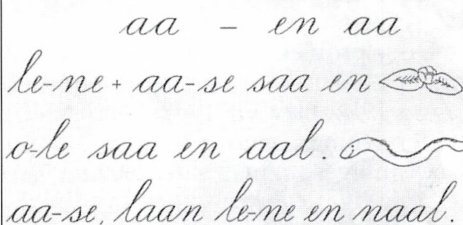 aa - en aa
le-ne + aa-se saa en
o-le saa en aal.
aa-se, laan le-ne en naal.